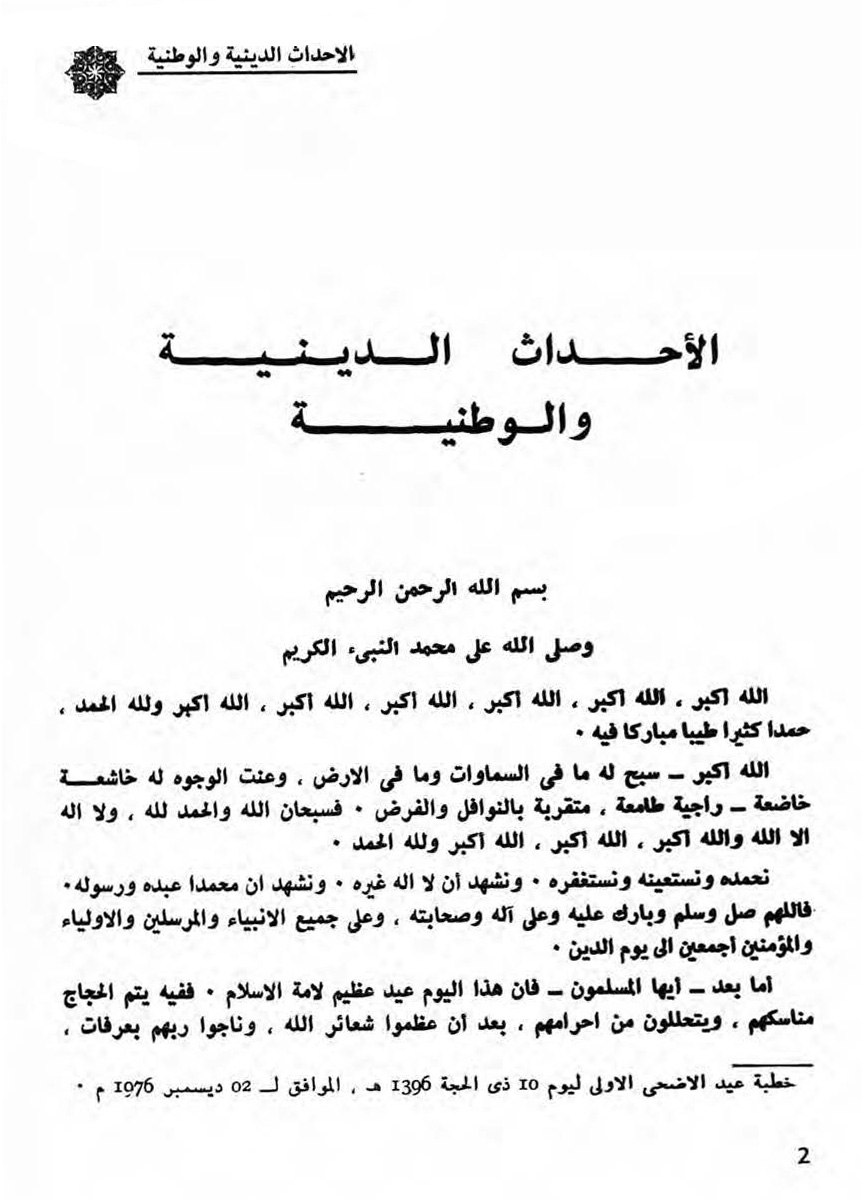 الاحداث الدينية والوطنية
الأحداث الدينية
والوطنية
بسم الله الرحمن الرحيم
وصلى الله على محمد النبىء الكريم
الله اكبر ، الله اكبر ، الله اكبر ، الله اكبر ، الله اكبر ، الله اكبر ولله الحمد ،
حمدا كثيرا طيبا مباركا فيه ٠
الله اكبر ــ سبح له ما فى السماوات وما فى الارض ، وعنت الوجوه له خاشعة
خاضعة ــ راجية طامعة ، متقربة بالنوافل والفرض ٠ فسبحان الله والحمد لله ، ولا اله
الا الله والله اكبر ، الله اكبر ، الله أكبر ولله الحمد ٠
نحمده ونستعينه ونستغفره ٠ ونشهد أن لا اله غيره ٠ ونشهد ان محمدا عبده ورسوله٠
فاللهم صل وسلم وبارك عليه وعلى آله وصحابته ، وعلى جميع الانبياء والمرسلين والاولياء
والمؤمنين أجمعين الى يوم الدين ٠
أما بعد ــ أيها المسلمون ــ فان هذا اليوم عيد عظيم لامة الاسلام ٠ ففيه يتم الحجاج
مناسكهم ، ويتحللون من احرامهم ، بعد أن عظموا شعائر الله ، وناجوا ربهم بعرفات ،
خطبة عيد الاضحى الاولى ليوم 10 ذى الحجة 1396 هـ ، الموافق لــ 02 ديسمبر 1976 م ٠
2